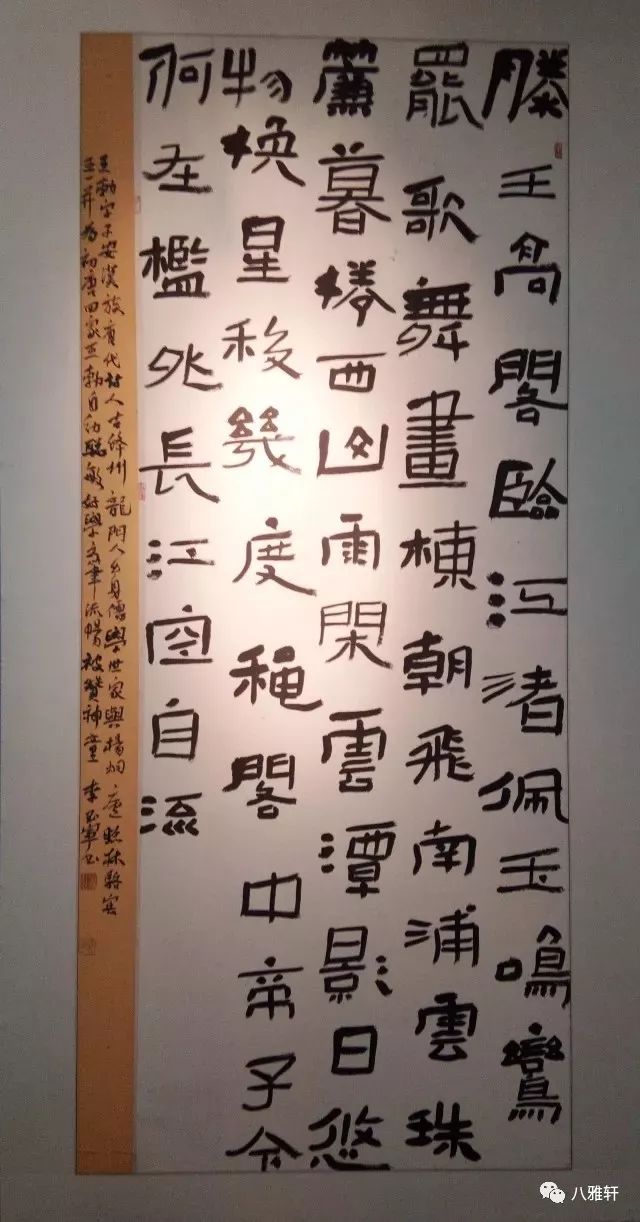 滕王高閣臨江渚佩玉鳴鸞
罷歌舞畫棟朝飛南浦雲珠
簾暮捲西山雨閑雲潭影日悠
物換星移幾度穐閣中帝子今
何在檻外長江空自流
王勃字子安漢族唐代詩人古絳州龍門人出身儒學世家與楊炯盧照鄰駱賓
王并為初唐四家王勃自幼聰敏好學文筆流暢被贊神童 李玉寧书
八雅轩